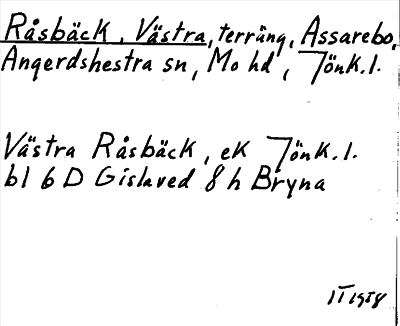 Råsbäck, Västra, terräng, Assarebo,
Angerdshestra sn, Mo hd, Jönk. l.
Västra Råsbäck, ek Jönk. l.
bl 6 D Gislaved 8 h Bryna
IT 1958